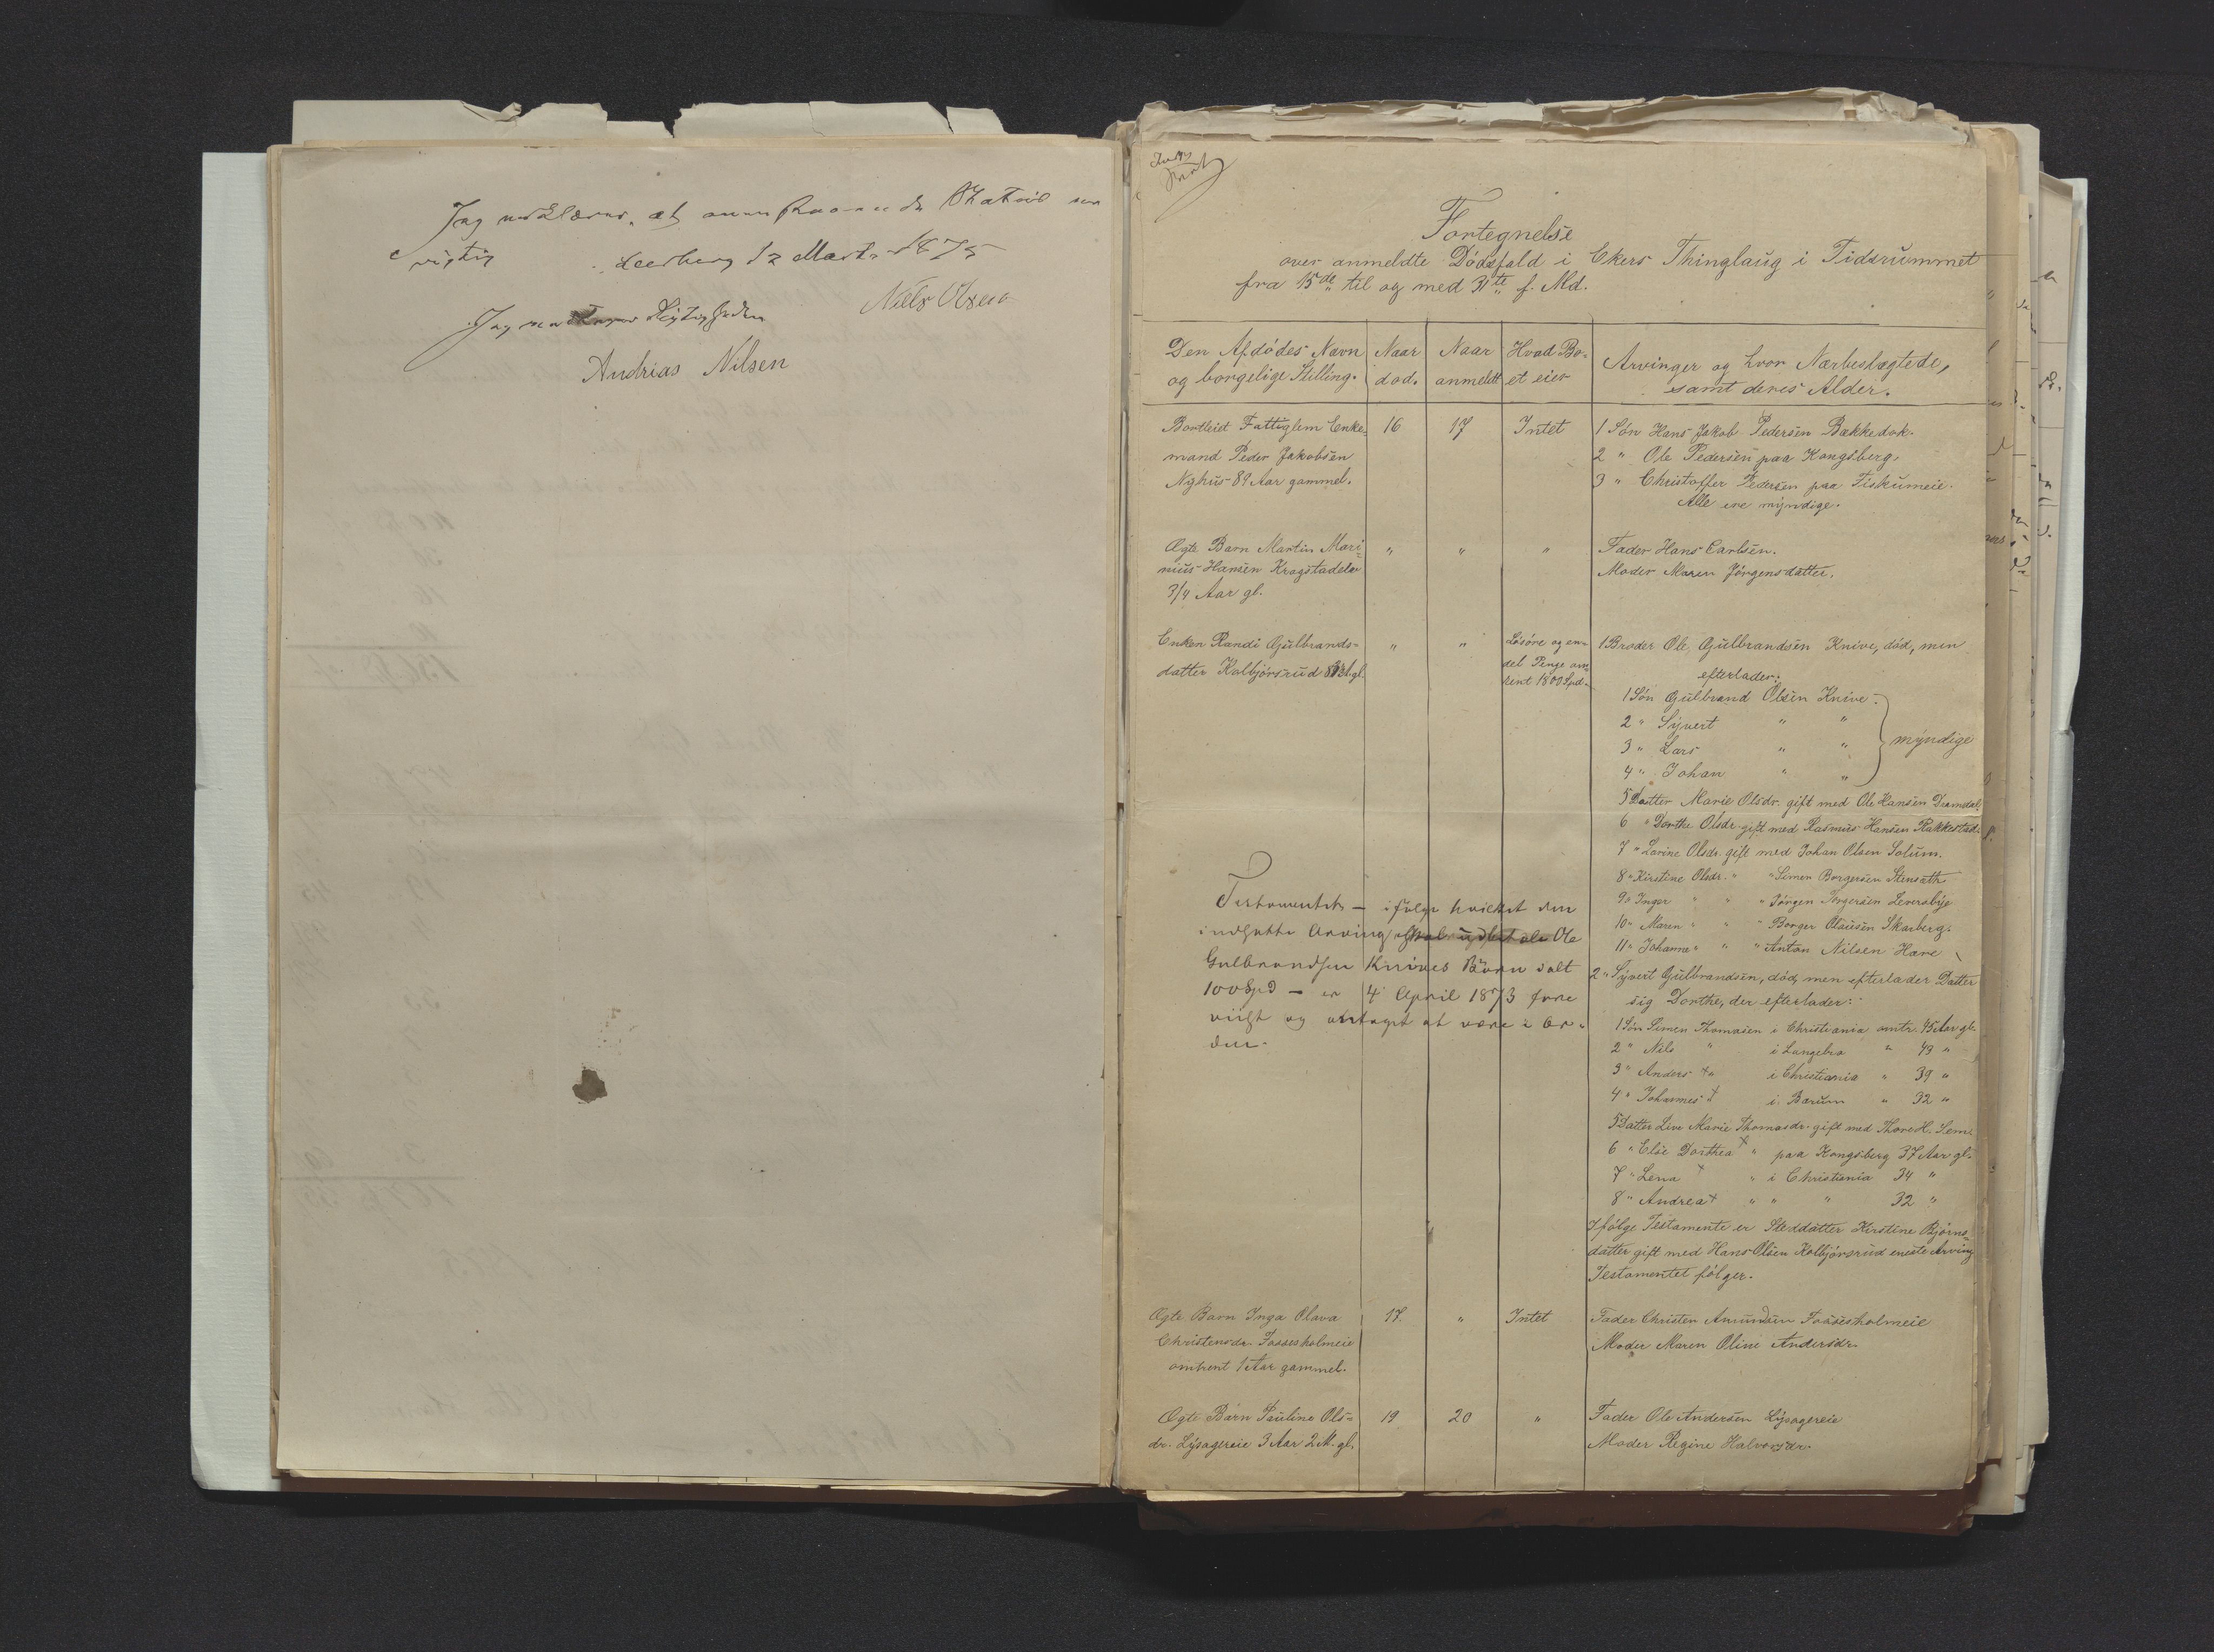 Jag erklærer, at
rigtig
Leerberg 12 Marts 1875
Niels Olsen
Jag Rigtigheden
Andrias Nilsen
Fortegnelse
over anmeldte Dödsfald i Ekers Thinglaug i Tidsrummet
fra 15de til og med 31te f. Md.
Den Afdödes Navn
og borgelige Stilling.
Naar
död.
Naar
anmeldt
Hvad Bo-
et eier
Arvinger og hvor Nærbeslægtede,
samt deres Alder.
Bortleiet Fattiglem Enke-
mand Peder Jakobsen
Nyhus 89 Aar gammel.
16
17
Intet
1 Sön Hans Jakob Pedersen Bækkedok.
2 " Ole Pedersen paa Kongsberg.
3 " Christoffer Pedersen paa Fiskumeie.
Alle ere myndige.
Ægte Barn Martin Mari-
nius Hansen Krogstadele
3/4 Aar gl.
" " "
Fader Hans Carlsen.
Moder Maren Jörgensdatter.
Enken Randi Gulbrands-
datter Kolbjörsrud gl.
" "
Lösöre og en-
del Penge om-
kent 1800 Spd.
1 Broder Ole Gulbrandsen Knive, död, men
efterlader:
1 Sön Gulbrand Olsen Knive.
2 " Syvert " "
3 " Lars " "
4 " Johan " "
myndige
5 Datter Marie Olsdr. gift med Ole Hansen Dramdal.
6 " Dorthe Olsdr. gift med Rasmus Hansen Rakkestad.
7 " Lorine Olsdr. gift med Johan Olsen Solum.
8 " Kirstine Olsdr. " " Simen Borgersen Stensæth
9 " Inger " " " Jörgen Jörgersen Leversbye
10 " Maren " " " Borger Olausen Skarberg.
11 " Johanne " " " Anton Nilsen Hare
2 " Syvert Gulbrandsen, död, men efterlader Datter
sig Dorthe, der efterlader:
1 Sön Simen Thomasen i Christiania omtr. 45 Aar gl.
2 " Nils " i Langebra " 49 "
3 " Anders + " i Christiania " 39 "
4 " Johannes + i Bærum " 32 "
5 Datter Live Marie Thomasdr. gift med Thore H. Sem.
6 " Else Dorthea + " paa Kongsberg 37 Aar gl.
7 " Lena + " i Christiania 34 "
8 " Andrea + " " " 32 "
Ifölge Testamente er Steddatter Kirstine Björns-
datter gift med Hans Olsen Kolbjörsrud eneste Arving
Testamentet fölger.
Testamentet – ifölge hvilket den
indsatte Arving skal udbetale Ole
Gulbrandsen Knives Börn ialt
100 Spd – er 4 April 1873 fore
viist og antaget at være i Or-
den.
Ægte Barn Inga Olava
Christensdr. Fossesholmeie
omkent 1 Aar gammel.
17.
"
Intet
Fader Christen Amundsen Fossesholmeie
Moder Maren Oline Andersdr.
Ægte Barn Pauline Ols-
dr. Lysagereie 3 Aar 2 M. gl.
19
20
"
Fader Ole Andersen Lysagereie
Moder Regine Halvorsdr.